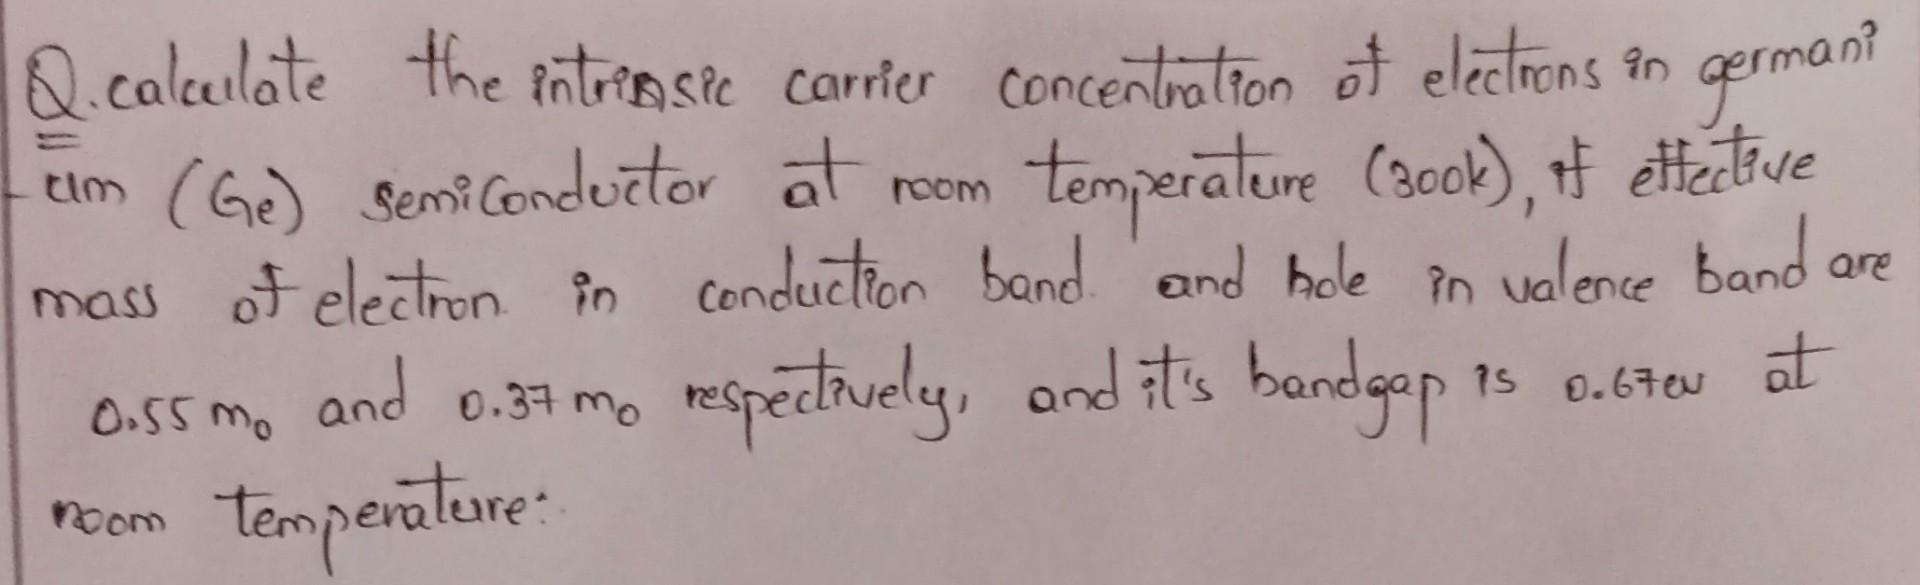 Q. calculate the intrinsic carrier concentration of electrons in germani
-um (Ge) semiconductor at room temperature (300k), if effective
mass of electron in conduction band. and hole in valence band are
0.55 m₀ and 0.37 m₀ respectively, and it's bandgap is 0.67ev at
room temperature: